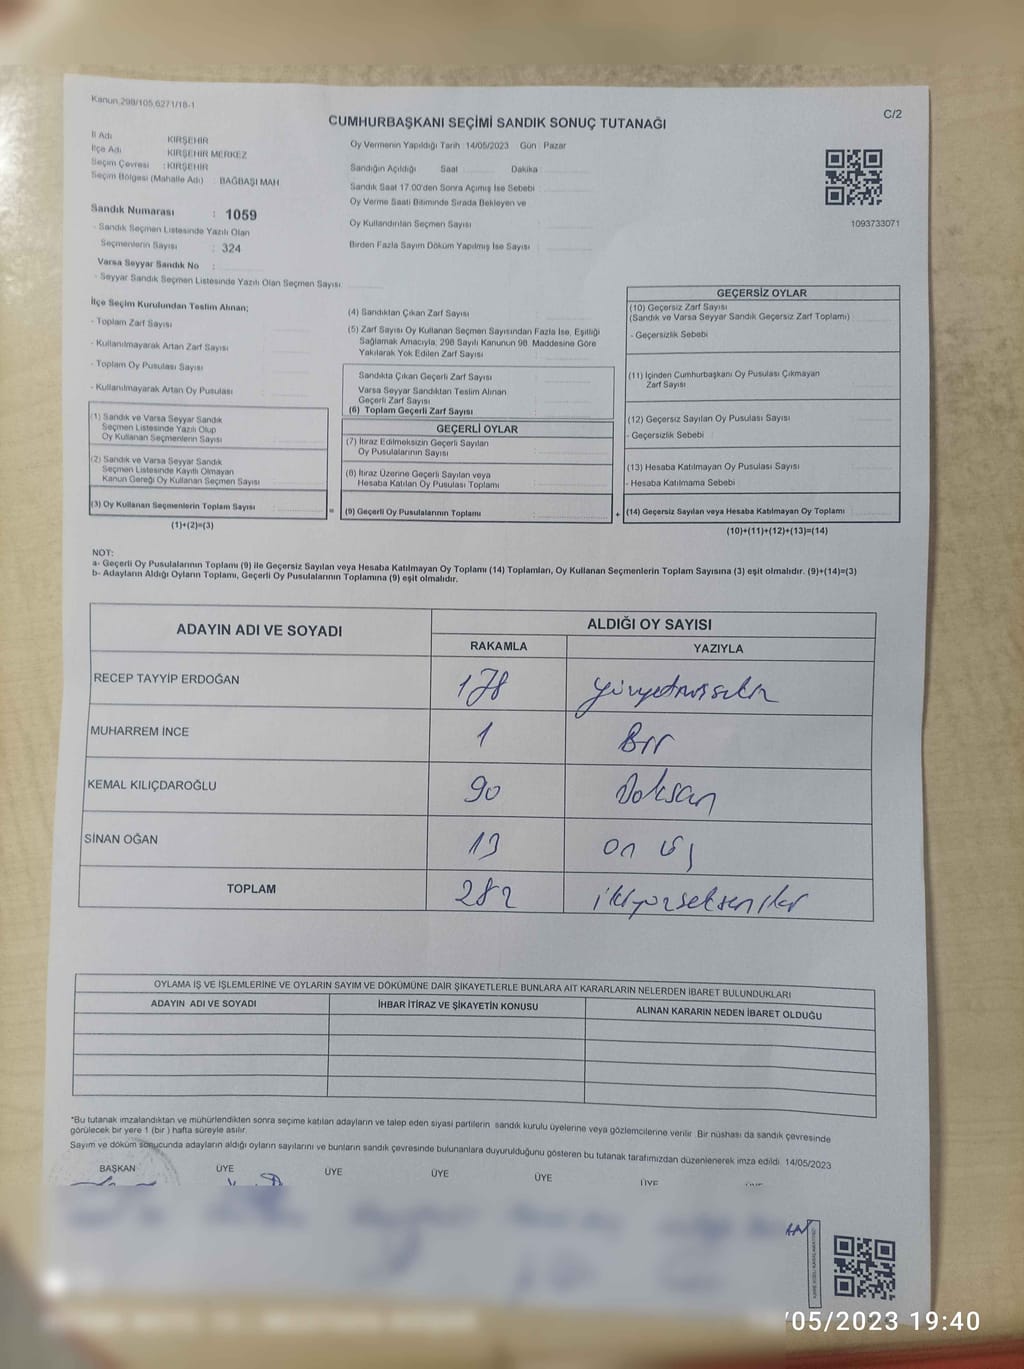 Kanun.298/105,6271/18-1
C/2
CUMHURBAŞKANI SEÇİMİ SANDIK SONUÇ TUTANAĞI
İl Adı KIRŞEHİR
İlçe Adı KIRŞEHİR MERKEZ
Seçim Çevresi : KIRŞEHİR
Seçim Bölgesi (Mahalle Adı) : BAĞBAŞI MAH
Sandık Numarası : 1059
- Sandık Seçmen Listesinde Yazılı Olan
Seçmenlerin Sayısı : 324
Varsa Seyyar Sandık No :
- Seyyar Sandık Seçmen Listesinde Yazılı Olan Seçmen Sayısı
Oy Vermenin Yapıldığı Tarih : 14/05/2023 Gün : Pazar
Sandığın Açıldığı Saat Dakika
Sandık Saat 17.00'den Sonra Açımış İse Sebebi
Oy Verme Saati Bitiminde Sırada Bekleyen ve
Oy Kullandırılan Seçmen Sayısı
Birden Fazla Sayım Döküm Yapılmış İse Sayısı
1093733071
İlçe Seçim Kurulundan Teslim Alınan;
- Toplam Zarf Sayısı
- Kullanılmayarak Artan Zarf Sayısı
- Toplam Oy Pusulası Sayısı
- Kullanılmayarak Artan Oy Pusulası
(1) Sandık ve Varsa Seyyar Sandık
Seçmen Listesinde Yazılı Olup
Oy Kullanan Seçmenlerin Sayısı
(2) Sandık ve Varsa Seyyar Sandık
Seçmen Listesinde Kayıtlı Olmayan
Kanun Gereği Oy Kullanan Seçmen Sayısı
(3) Oy Kullanan Seçmenlerin Toplam Sayısı
(1)+(2)=(3)
=
(4) Sandıktan Çıkan Zarf Sayısı
(5) Zarf Sayısı Oy Kullanan Seçmen Sayısından Fazla İse, Eşitliği
Sağlamak Amacıyla, 298 Sayılı Kanunun 98. Maddesine Göre
Yakılarak Yok Edilen Zarf Sayısı
Sandıkta Çıkan Geçerli Zarf Sayısı
Varsa Seyyar Sandıktan Teslim Alınan
Geçerli Zarf Sayısı
(6) Toplam Geçerli Zarf Sayısı
GEÇERLİ OYLAR
(7) İtiraz Edilmeksizin Geçerli Sayılan
Oy Pusulalarının Sayısı
(8) İtiraz Üzerine Geçerli Sayılan veya
Hesaba Katılan Oy Pusulası Toplamı
(9) Geçerli Oy Pusulalarının Toplamı
+
GEÇERSİZ OYLAR
(10) Geçersiz Zarf Sayısı
(Sandık ve Varsa Seyyar Sandık Geçersiz Zarf Toplamı)
- Geçersizlik Sebebi
(11) İçinden Cumhurbaşkanı Oy Pusulası Çıkmayan
Zarf Sayısı
(12) Geçersiz Sayılan Oy Pusulası Sayısı
- Geçersizlik Sebebi
(13) Hesaba Katılmayan Oy Pusulası Sayısı
- Hesaba Katılmama Sebebi
(14) Geçersiz Sayılan veya Hesaba Katılmayan Oy Toplamı
(10)+(11)+(12)+(13)=(14)
NOT:
a- Geçerli Oy Pusulalarının Toplamı (9) ile Geçersiz Sayılan veya Hesaba Katılmayan Oy Toplamı (14) Toplamları, Oy Kullanan Seçmenlerin Toplam Sayısına (3) eşit olmalıdır. (9)+(14)=(3)
b- Adayların Aldığı Oyların Toplamı, Geçerli Oy Pusulalarının Toplamına (9) eşit olmalıdır.
ADAYIN ADI VE SOYADI
ALDIĞI OY SAYISI
RAKAMLA YAZIYLA
RECEP TAYYİP ERDOĞAN 178
MUHARREM İNCE 1 Bir
KEMAL KILIÇDAROĞLU 90 Doksan
SİNAN OĞAN 13 on üç
TOPLAM 282 ikiyüzsekseniki
OYLAMA İŞ VE İŞLEMLERİNE VE OYLARIN SAYIM VE DÖKÜMÜNE DAİR ŞİKAYETLERLE BUNLARA AİT KARARLARIN NELERDEN İBARET BULUNDUKLARI
ADAYIN ADI VE SOYADI İHBAR İTİRAZ VE ŞİKAYETİN KONUSU ALINAN KARARIN NEDEN İBARET OLDUĞU
*Bu tutanak imzalandıktan ve mühürlendikten sonra seçime katılan adayların ve talep eden siyasi partilerin sandık kurulu üyelerine veya gözlemcilerine verilir. Bir nüshası da sandık çevresinde
görülecek bir yere 1 (bir) hafta süreyle asılır.
Sayım ve döküm sonucunda adayların aldığı oyların sayılarını ve bunların sandık çevresinde bulunanlara duyurulduğunu gösteren bu tutanak tarafımızdan düzenlenerek imza edildi. 14/05/2023
BAŞKAN ÜYE ÜYE ÜYE ÜYE ÜYE
/05/2023 19:40